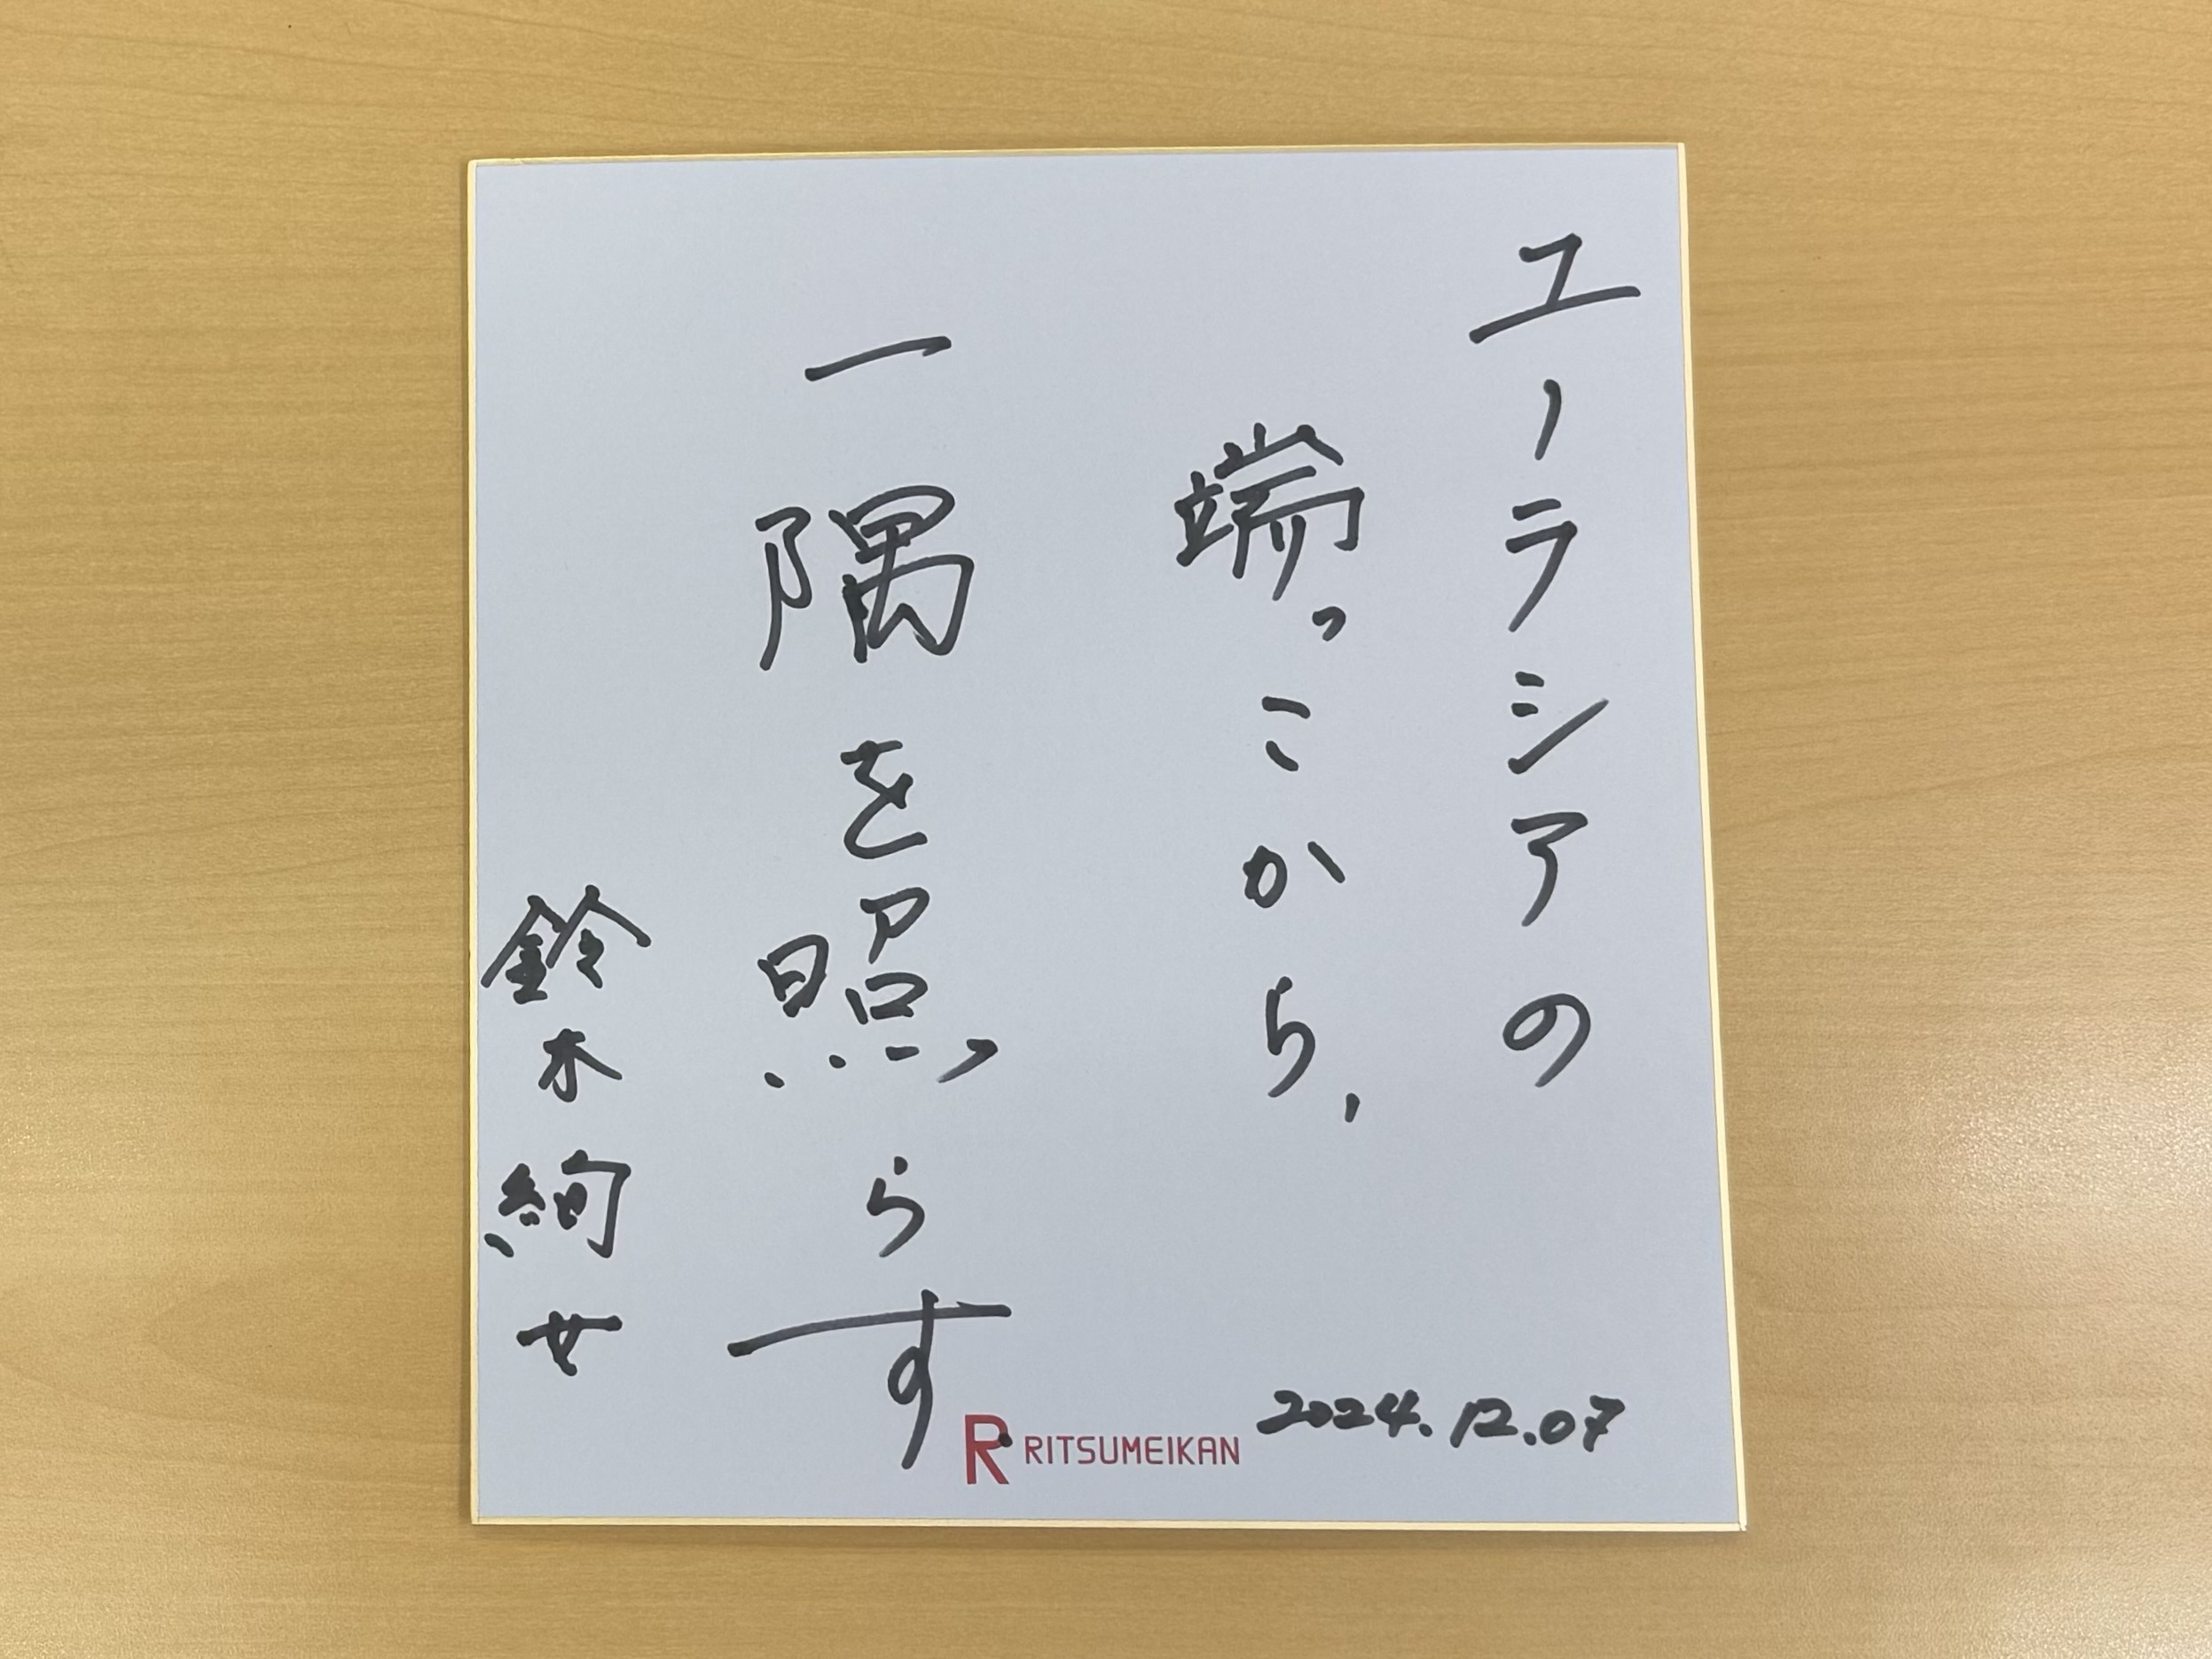 ユーラシアの
端っこから、
一隅を照らす
鈴木絢女
2024.12.07
R RITSUMEIKAN